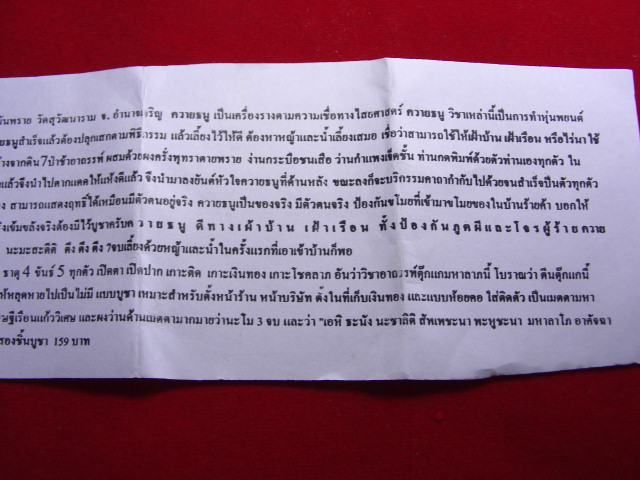 นพราย วัดสุวัฒนาราม จ. อำนาจเจริญ ควายธนู เป็นเครื่องรางตามความเชื่อทางไสยศาสตร์ ควายธนู วิชาเหล่านี้เป็นการทำหุ่นพยนต์
ยธนูสำเร็จแล้วต้องปลุกเสกตามพิธีกรรม แล้วเลี้ยงไว้ให้ดี ต้องหาหญ้าและน้ำเลี้ยงเสมอ เชื่อว่าสามารถใช้ให้เฝ้าบ้าน เฝ้าเรือน หรือไร่นา ใช้
างจากดิน 7 ป่าช้าอาถรรพ์ ผสมด้วยผงครั่งพุทราตายพราย ง่านกระบือชนเสือ ว่านกำแพงเจ็ดชั้น ท่านกดพิมพ์ด้วยตัวท่านเองทุกตัว ใน
แล้วจึงนำไปตากแดดให้แห้งดีแล้ว จึงนำมาลงยันต์หัวใจควายธนูที่ด้านหลัง ขณะลงก็จะบริกรรมคาถากำกับไปด้วยจนสำเร็จเป็นตัวทุกตัว
ง สามารถแสดงฤทธิ์ได้เหมือนมีตัวตนอยู่จริง ควายธนูเป็นของจริง มีตัวตนจริง ป้องกันขโมยที่เข้ามาขโมยของในบ้านร้ายค้า บอกให้
ังเข้มขลังจริงต้องมีไว้บูชาครับค ว า ย ธ นู ดี ท า ง เ ฝ้ า บ้ า น เ ฝ้ า เ รื อ น ทั้ ง ป้ อ ง กั น ภู ต ผี แ ล ะ โ จ ร ผู้ ร้ า ย ควาย
นะมะสะตีติ ดึง ดึง ดึง 7จบเลี้ยงด้วยหญ้าและน้ำในครั้งแรกที่เอาเข้าบ้านก็พอ
ธาตุ 4 ขันธ์ 5 ทุกตัว เปิดตา เปิดปาก เกาะติด เกาะเงินทอง เกาะโชคลาภ อันว่าวิชาอาถรรพ์ตุ๊กแกมหาลาภนี้ โบราณว่า ตีนตุ๊กแกนี้
ให้หลุดหายไปเป็นไม่มี แบบบูชา เหมาะสำหรับตั้งหน้าร้าน หน้าบริษัท ตั้งในที่เก็บเงินทอง และแบบห้อยคอ ใส่ติดตัว เป็นเมตตามหา
ษฐีเรือนแก้ววิเศษ และผงว่านด้านเมตตามากมายว่านะโม 3 จบ และว่า "เอหิ ธะนัง นะชาลิติ สัพเพชะนา พะหูชะนา มหาลาโภ อาคัจฉา
องชิ้นบูชา 159 บาท